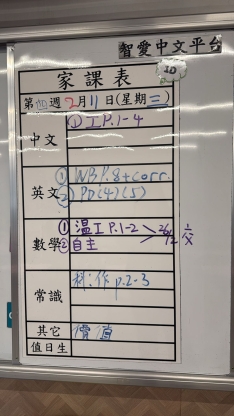 智愛中文平台
家課表
1D
第四週2月11日(星期二)
中文
①工P.1-4
英文
①WB P.8+corr.
②PD(4)(5)
數學
①溫工P.1-2
②自主
26/2 交
常識
科:作p.2-3
其它
價值
值日生